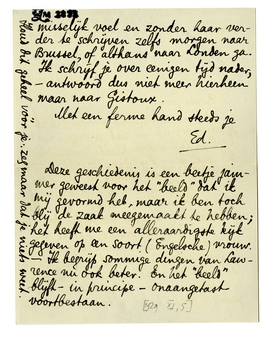 misselijk voel en zonder haar ver-
der te schrijven zelfs morgen naar
Brussel, of althans naar Londen ga.
Ik schrijf je over eenigen tijd nader,
– antwoord dus niet meer hierheen
maar naar Gistoux.
Met een ferme hand steeds je
Ed.
Deze geschiedenis is een beetje jam-
mer geweest voor het "beeld" dat ik
mij gevormd heb, maar ik ben toch
blij de zaak meegemaakt te hebben;
het heeft me een alleraardigste kijk
gegeven op een soort (Engelsche) vrouw.
Ik begrijp sommige dingen van Law-
rence nu ook beter. En het "beeld"
blijft – in principe – onaangetast
voortbestaan.
Houd dit geheel vóór je. Zeg maar dat je niets weet.